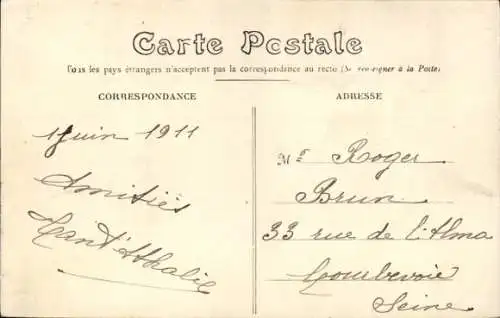 Carte Postale
Tous les pays étrangers n'acceptent pas la correspondance au recto (Se renseigner à la Poste)
CORRESPONDANCE
ADRESSE
1 Juin 1911
Amitiés
Mr Roger
Brun
33 rue de l'Alma
Courbevoie
Seine